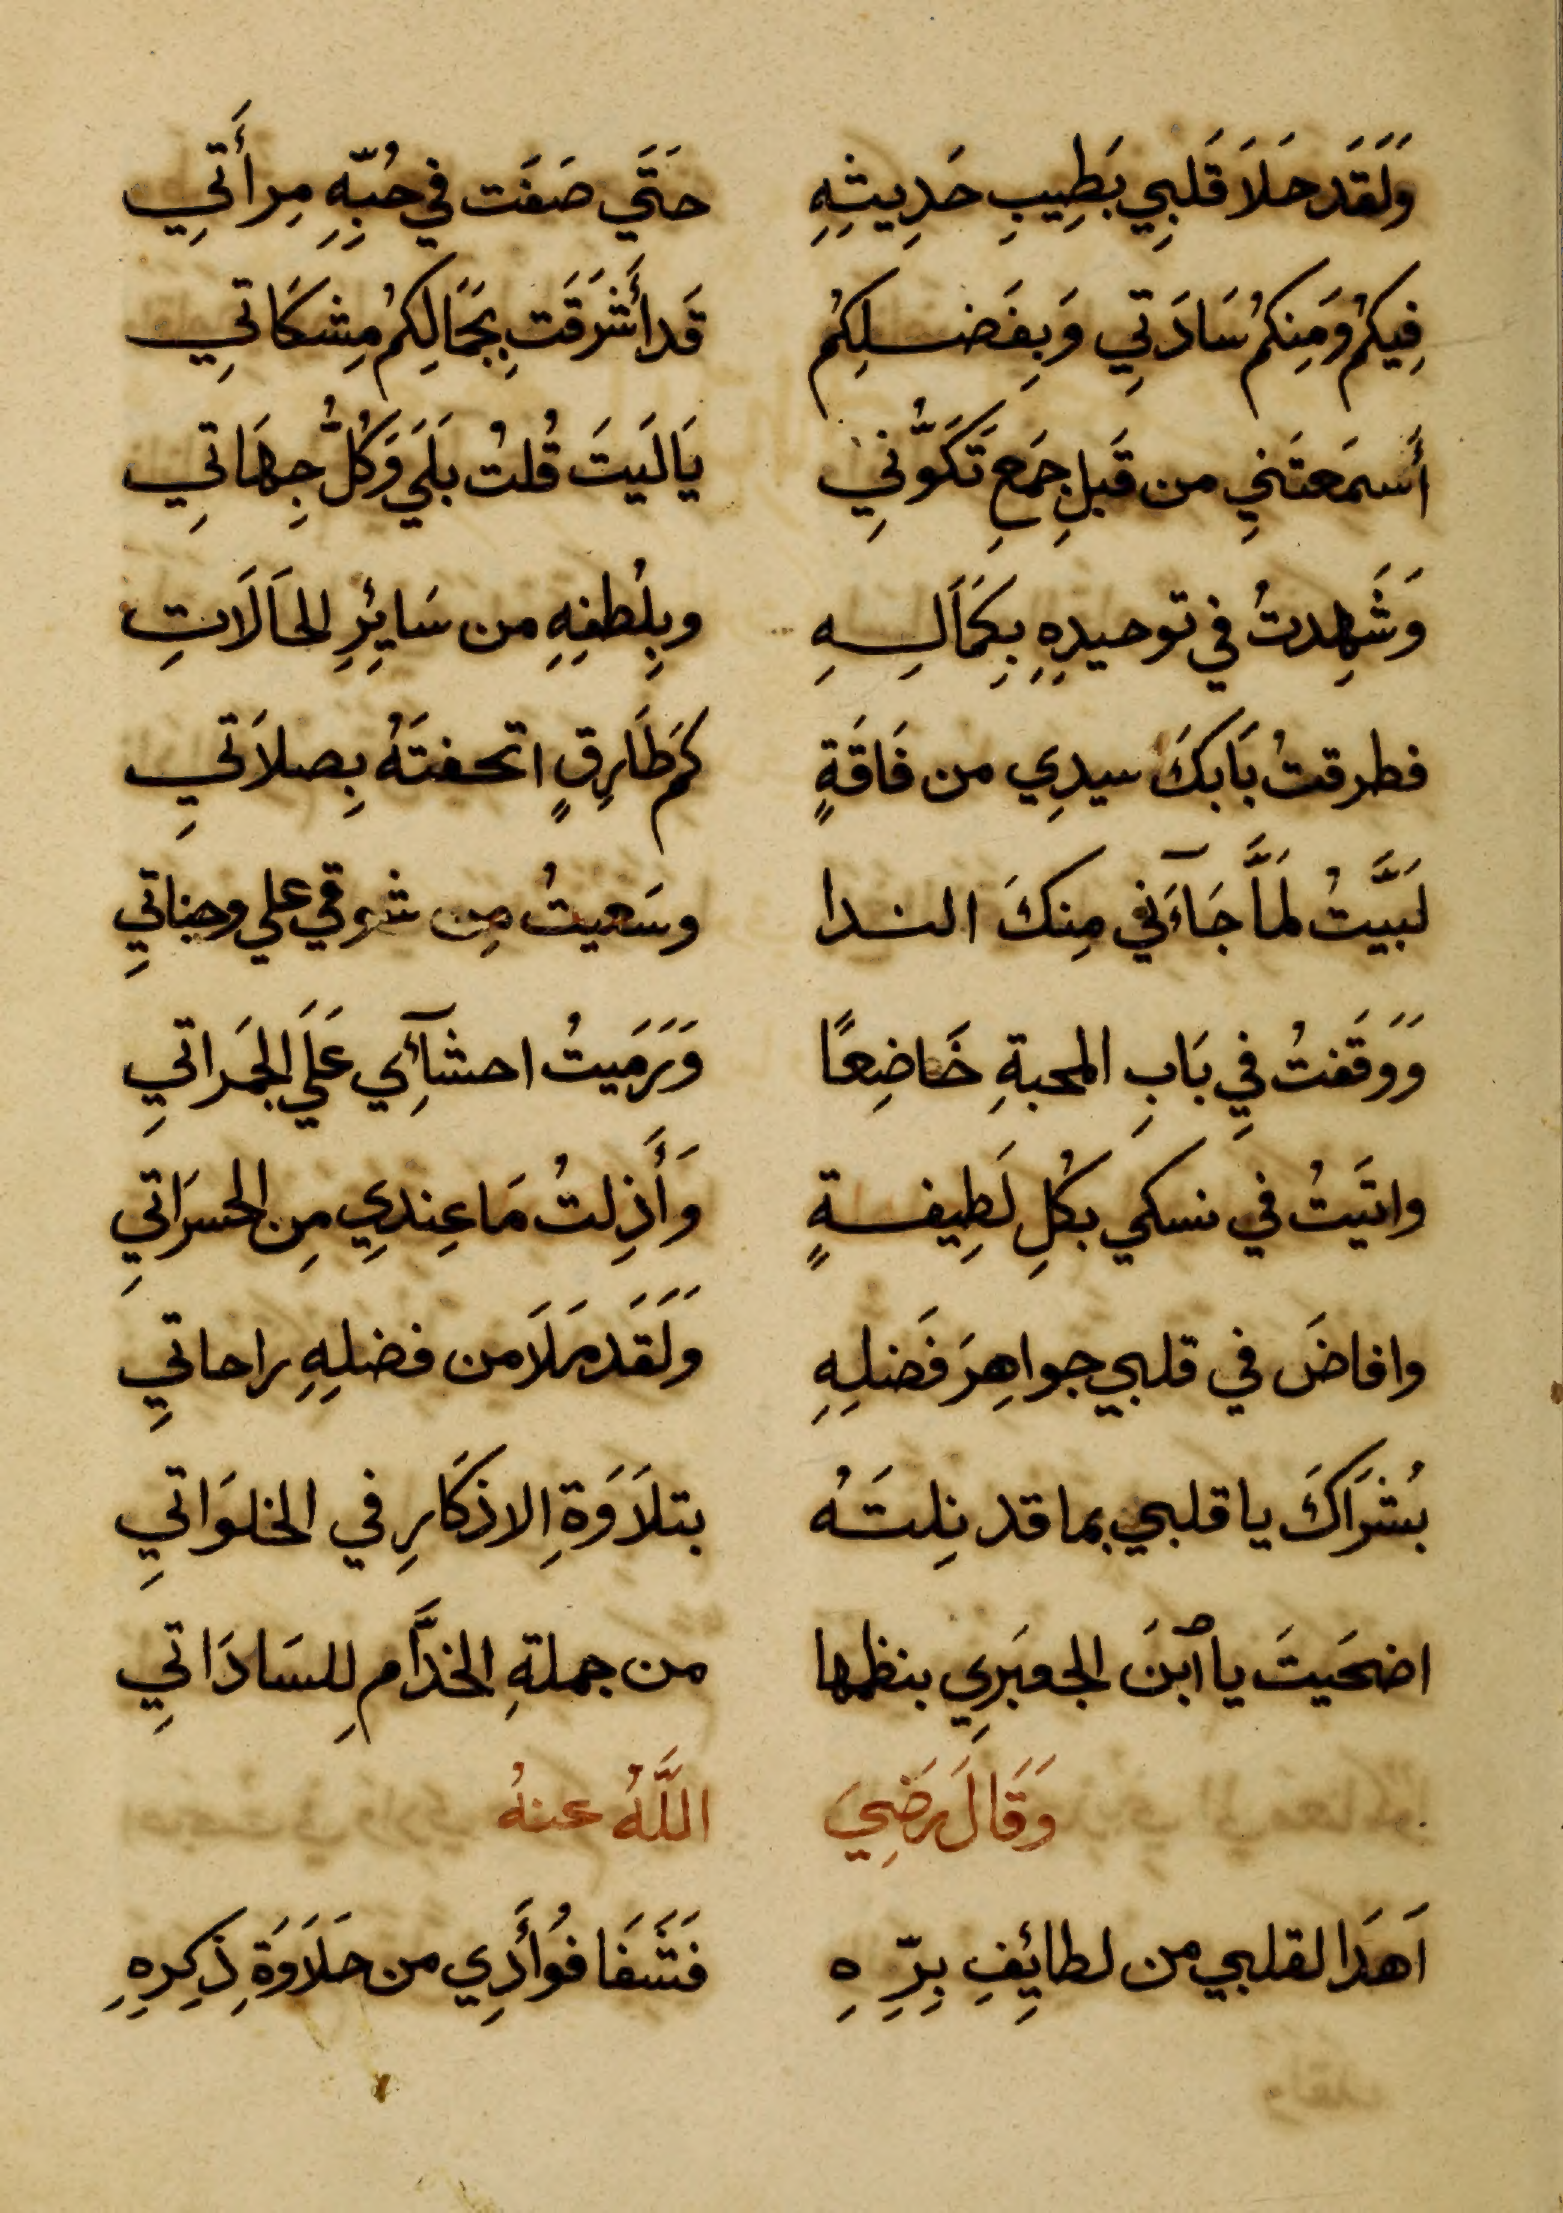 وَلَقَد حَلَا قَلبِي بَطِيبِ حَدِيثِهِ حَتَّي صَفَت في حُبِّهِ مِرأَتِي
فِيكُم وَمِنكُم سَادَتِي وَبِفَضلِكُم قَد أَشرَقَت بِجَمَالِكُم مِشكَاتِي
أَسمَعتَنِي من قَبلِ جَمعِ تَكَوُّنِي يَالَيتَ قُلتُ بَلَي وَكُلُّ جِهَاتِي
وَشَهِدتُ في توحيدِهِ بِكَمَالِهِ وبِلُطفِهِ من سَائِرِ الحَالَاتِ
فطرقتُ بَابَكَ سيدِي من فَاقَةٍ كَم طَارِقٍ اتحفتَهُ بِصلَاتي
لَبَّيتُ لَمَّا جَآءَني مِنكَ الندا وسَعيتُ مِن شوقي علي وجناتي
وَوَقَفتُ فِي بَابِ المحبةِ خَاضِعًا وَرَمَيتُ احشآئِي عَلَي الجَمَراتي
واتَيتُ في نسكي بكُلِ لَطِيفةٍ وَأَذِلتُ مَا عِندِي مِن الحسرَاتي
وافاضَ في قلبي جواهِرَ فَضلِهِ وَلَقَد مَلَا من فضلِهِ راحاتي
بُشرَاكَ يا قلبي بما قد نِلتَهُ بتلَاوَةِ الاذكَارِ في الخلوَاتي
اضحَيتَ يا ٱبنَ الجعبَرِي بنظمها من جملةِ الخدَّامِ للسَادَاتي
وَقَالَ رَضِيَ اللَّهُ عنهُ
اَهدَا لقلبي من لطائِفِ بِرِّهِ فَشَفَا فُوأَدِي من حَلَاوَةِ ذِكرِهِ